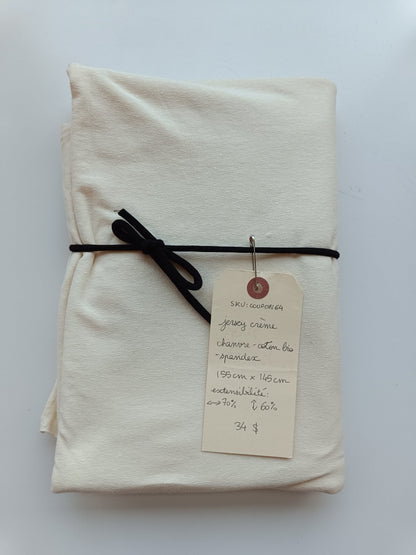 SKU: COUPON64
jersey crème
chanvre - coton bio
- spandex
155cm x 145cm
extensibilité:
↔ 70% ↕ 60%
34 $